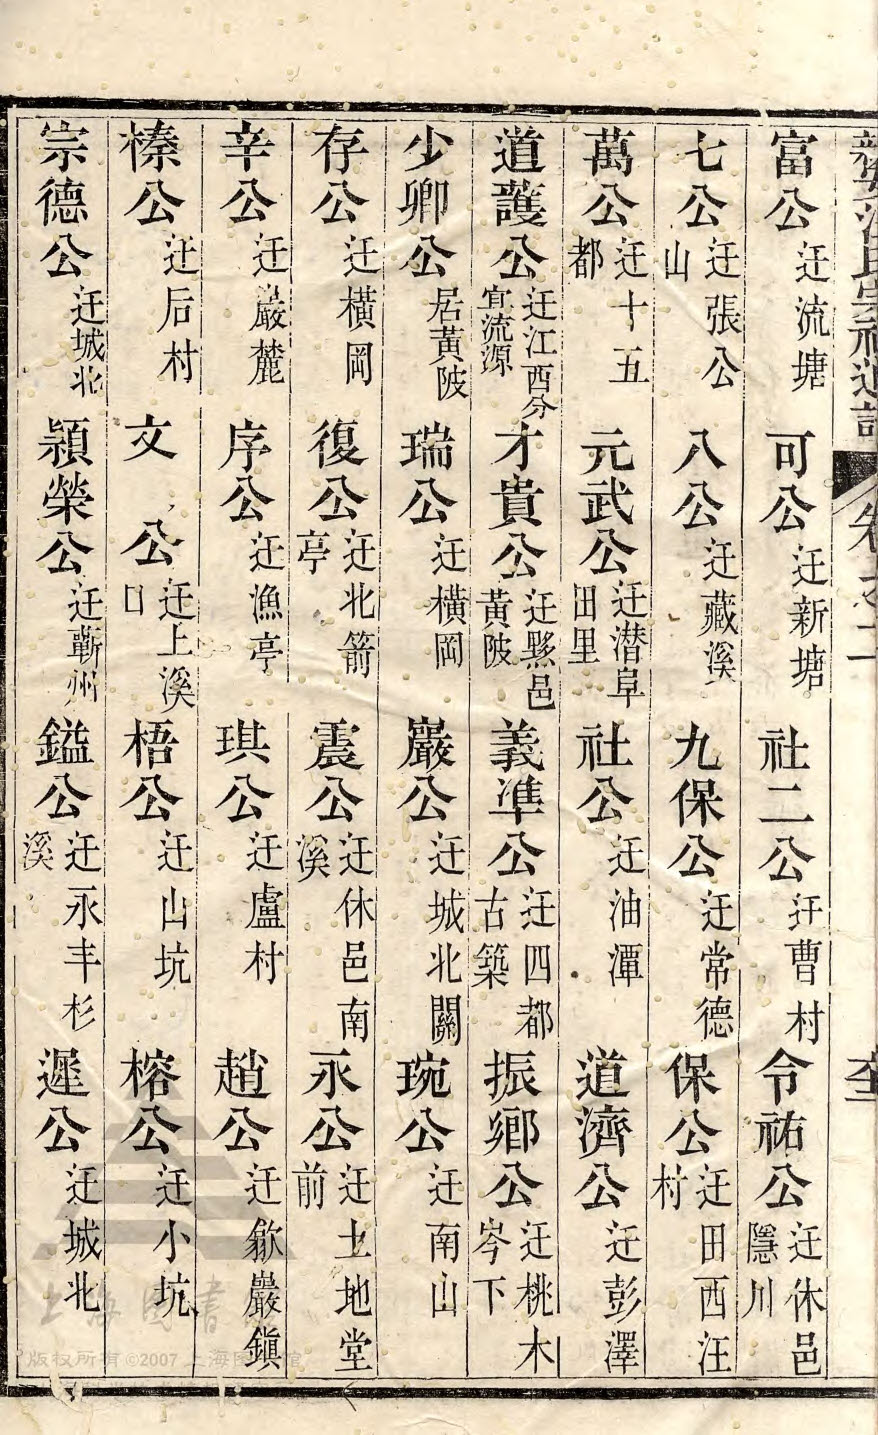 新安汪氏宗祠通譜 卷之二
富公 迁流塘 可公 迁新塘 社二公 迁曹村 令祐公 迁休邑隱川
七公 迁張公山 八公 迁藏溪 九保公 迁常德 保公 迁田西汪村
萬公 迁十五都 元武公 迁潛阜田里 社公 迁油潭 道濟公 迁彭澤
道護公 迁江西分宜流源 才貴公 迁黟邑黃陂 義準公 迁四都古築 振鄉公 迁桃木岑下
少卿公 居黃陂 瑞公 迁橫岡 巖公 迁城北關 琬公 迁南山
存公 迁橫岡 復公 迁北箭亭 震公 迁休邑南溪 永公 迁土地堂前
辛公 迁嚴麓 序公 迁漁亭 琪公 迁盧村 趙公 迁歙巖鎭
榛公 迁后村 文公 迁上溪口 梧公 迁山坑 榕公 迁小坑
宗德公 迁城北 穎榮公 迁蘄州 鎰公 迁永丰杉溪 遲公 迁城北
上海图書
版权所有©2007 上海图书馆